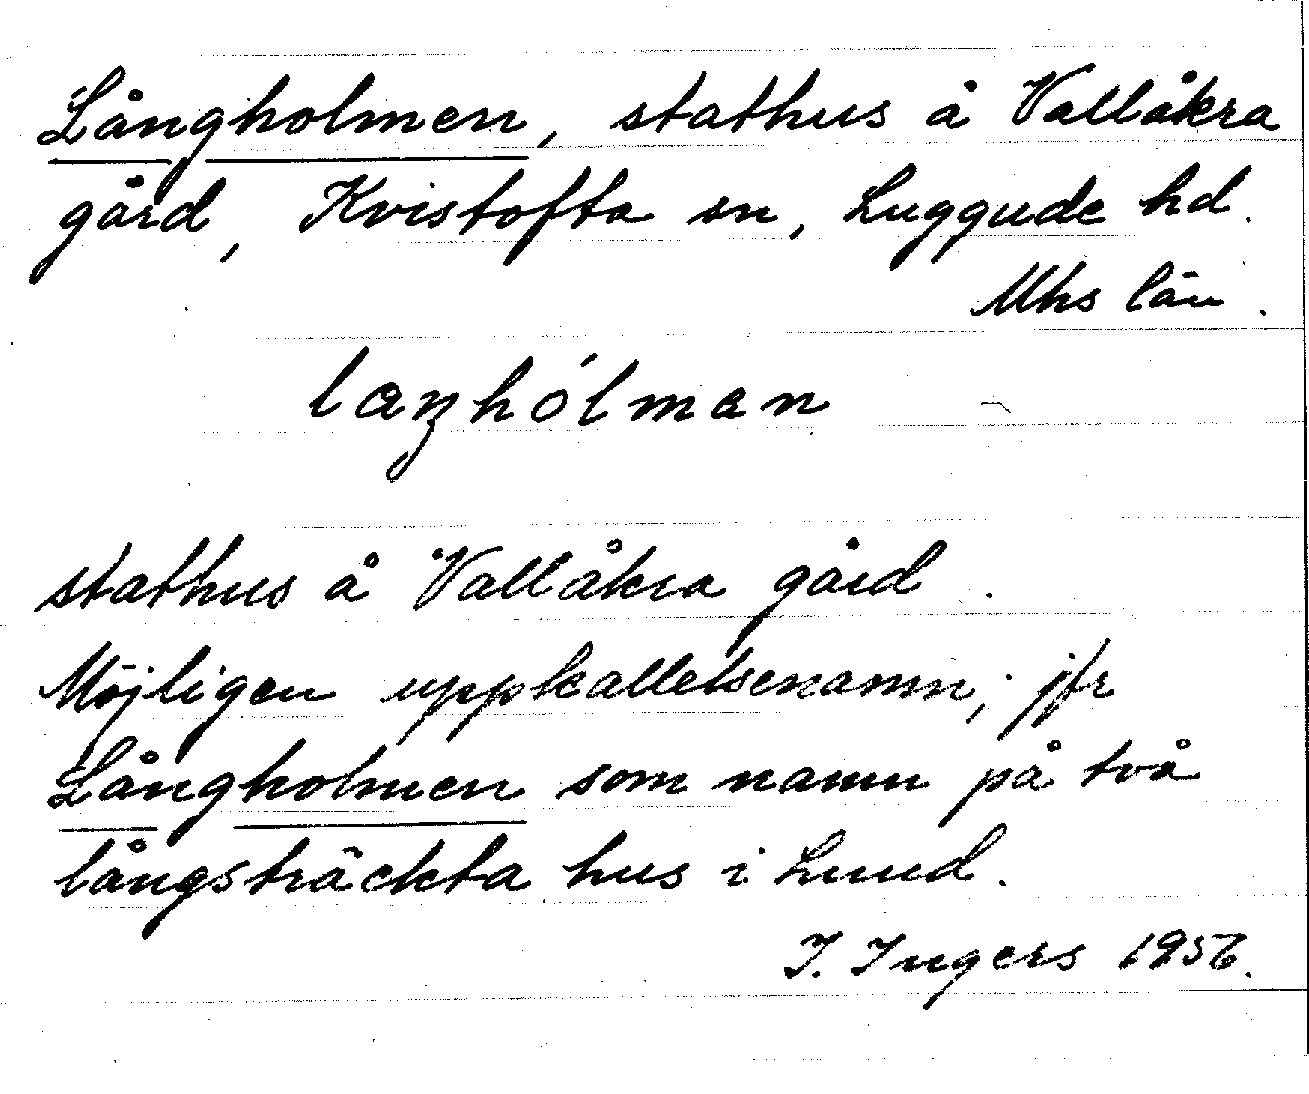 Långholmen, stathus å Vallåkra
gård, Kvistofta sn, Luggude hd.
Mhs län.
laŋhólman
stathus å Vallåkra gård.
Möjligen uppkallelsenamn; jfr
Långholmen som namn på två
långsträckta hus i Lund.
I. Ingers 1956.